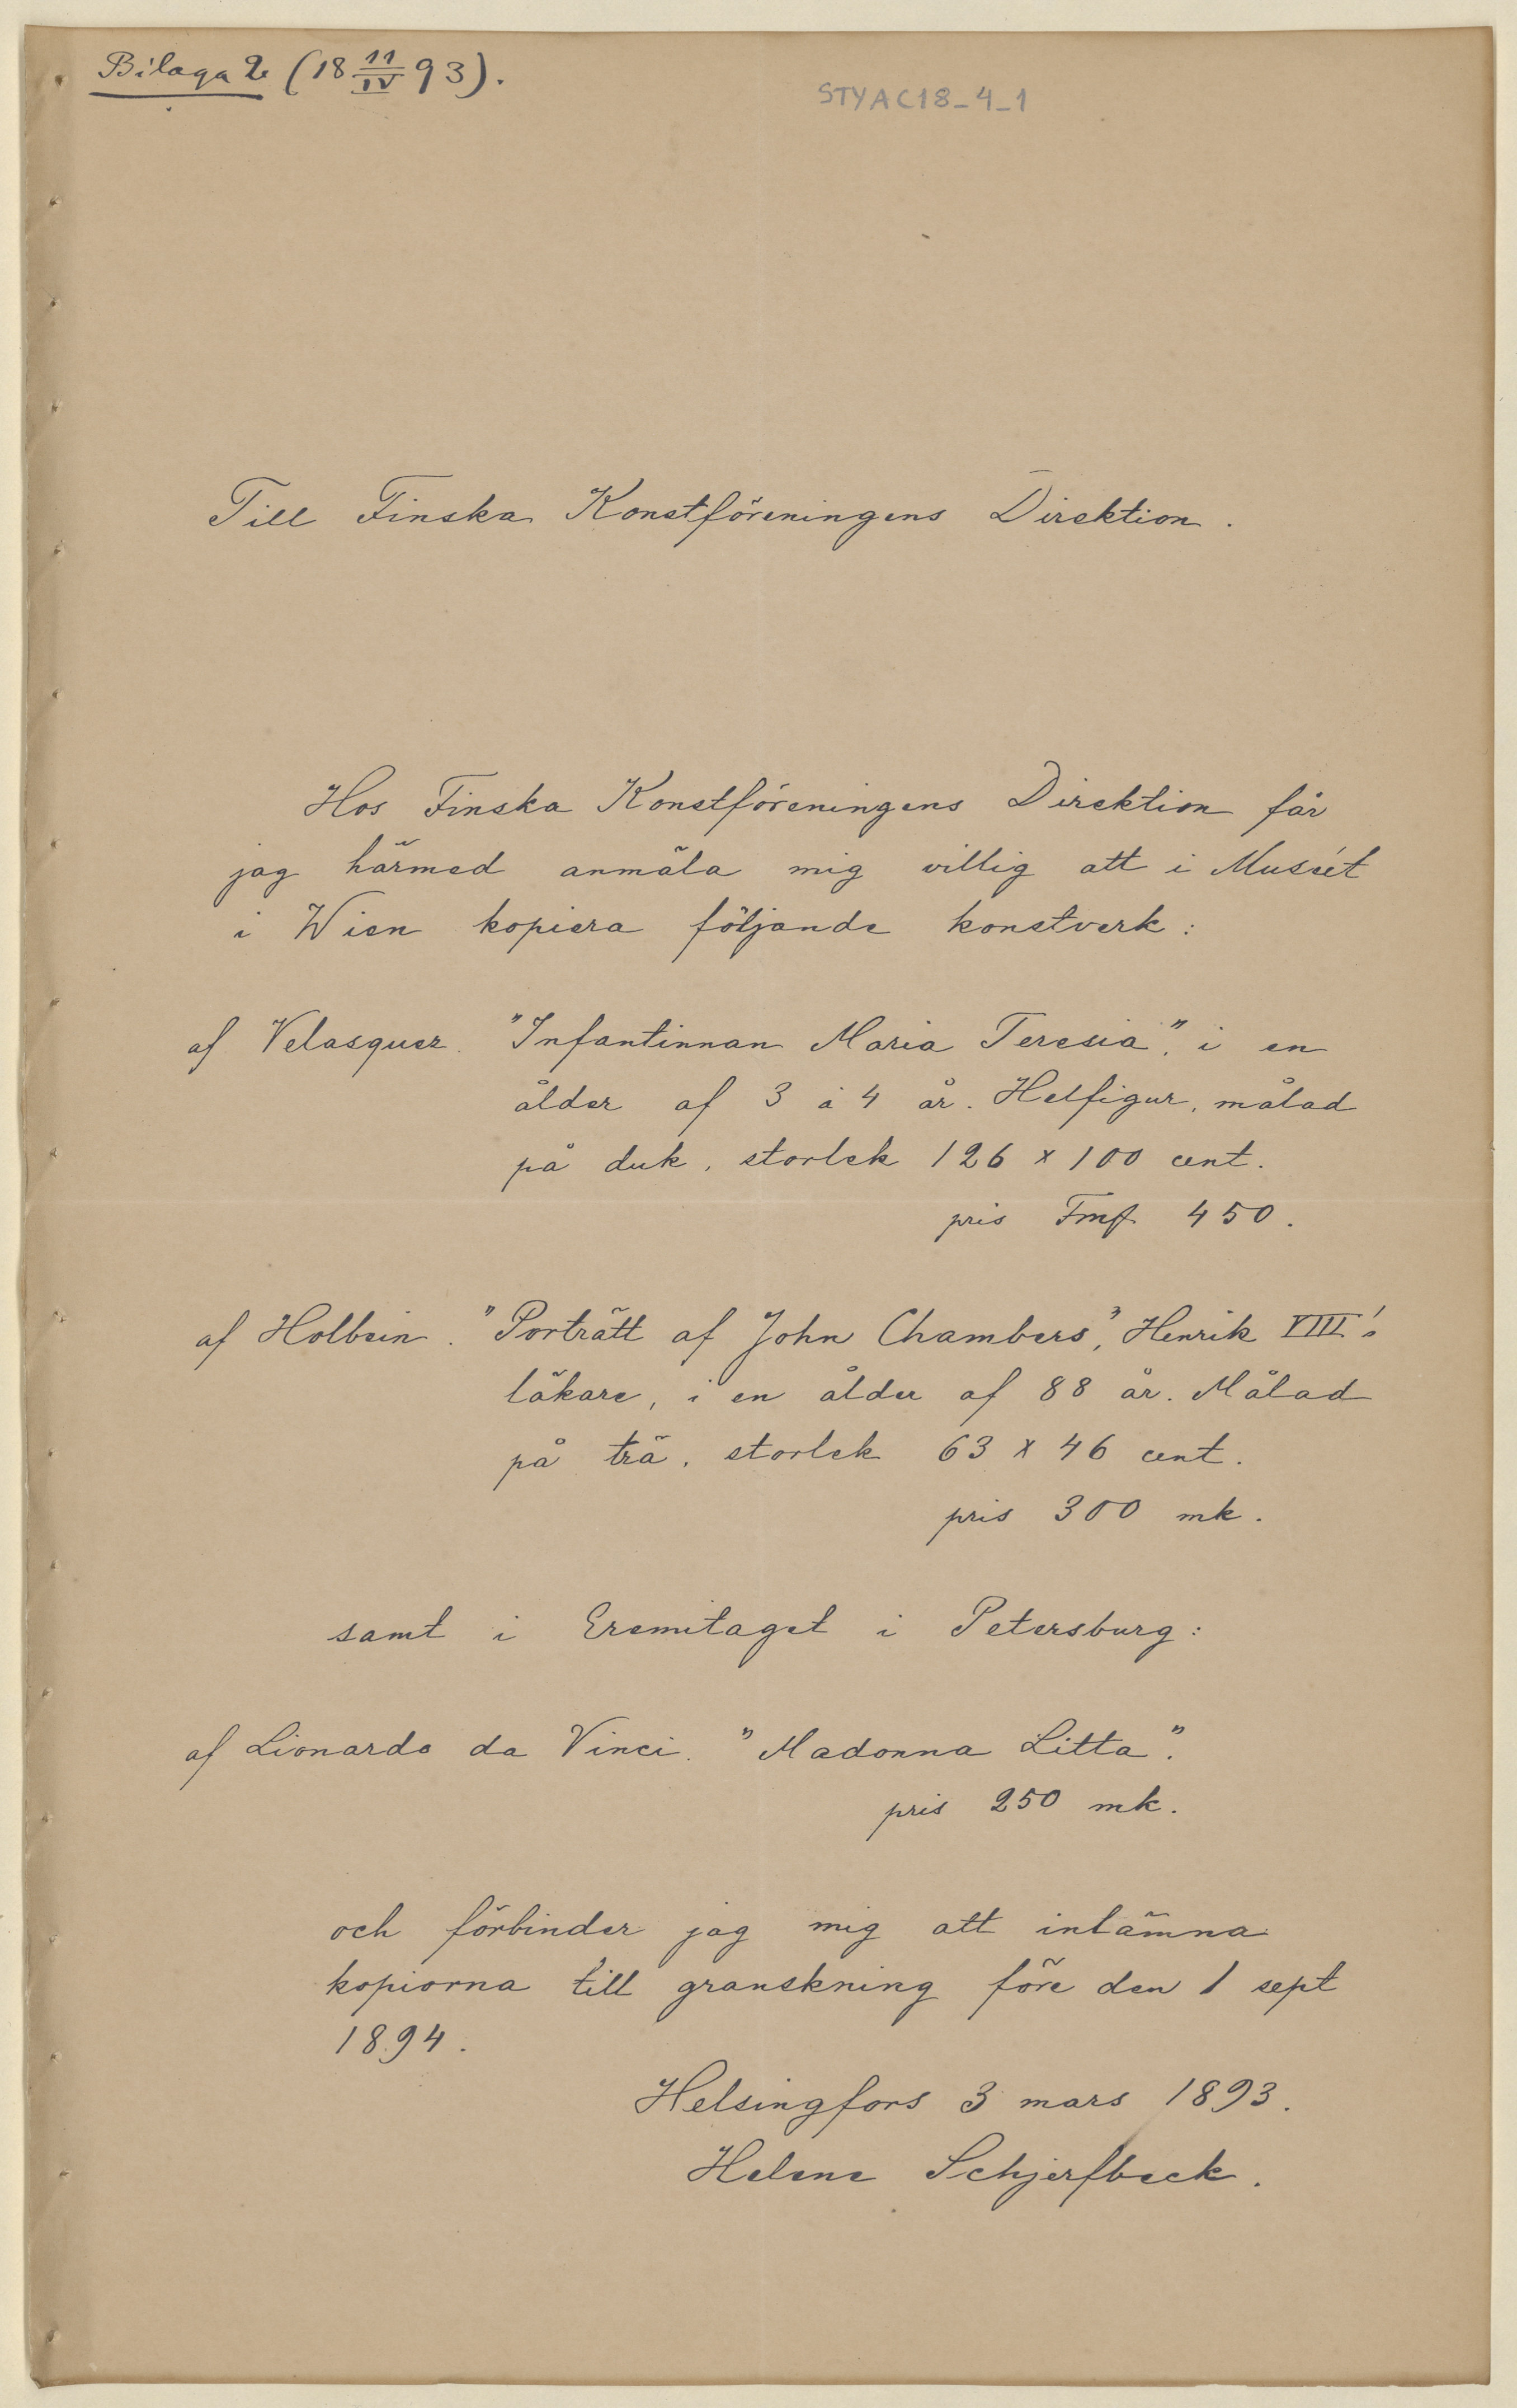 Bilaga 2 (18 11/IV 93).
STYAC18_4_1
Till Finska Konstföreningens Direktion.
Hos Finska Konstföreningens Direktion får
jag härmed anmäla mig villig att i Muséet
i Wien kopiera följande konstverk:
af Velasquez. "Infantinnan Maria Teresia", i en
ålder af 3 à 4 år. Helfigur, målad
på duk, storlek 126 x 100 cent.
pris Fmf 450.
af Holbein. "Porträtt af John Chambers", Henrik VIII's
läkare, i en ålder af 88 år. Målad
på trä, storlek 63 x 46 cent.
pris 300 mk.
samt i Eremitaget i Petersburg:
af Lionardo da Vinci. "Madonna Litta".
pris 250 mk.
och förbinder jag mig att inlämna
kopiorna till granskning före den 1 sept
1894.
Helsingfors 3 mars 1893.
Helene Schjerfbeck.